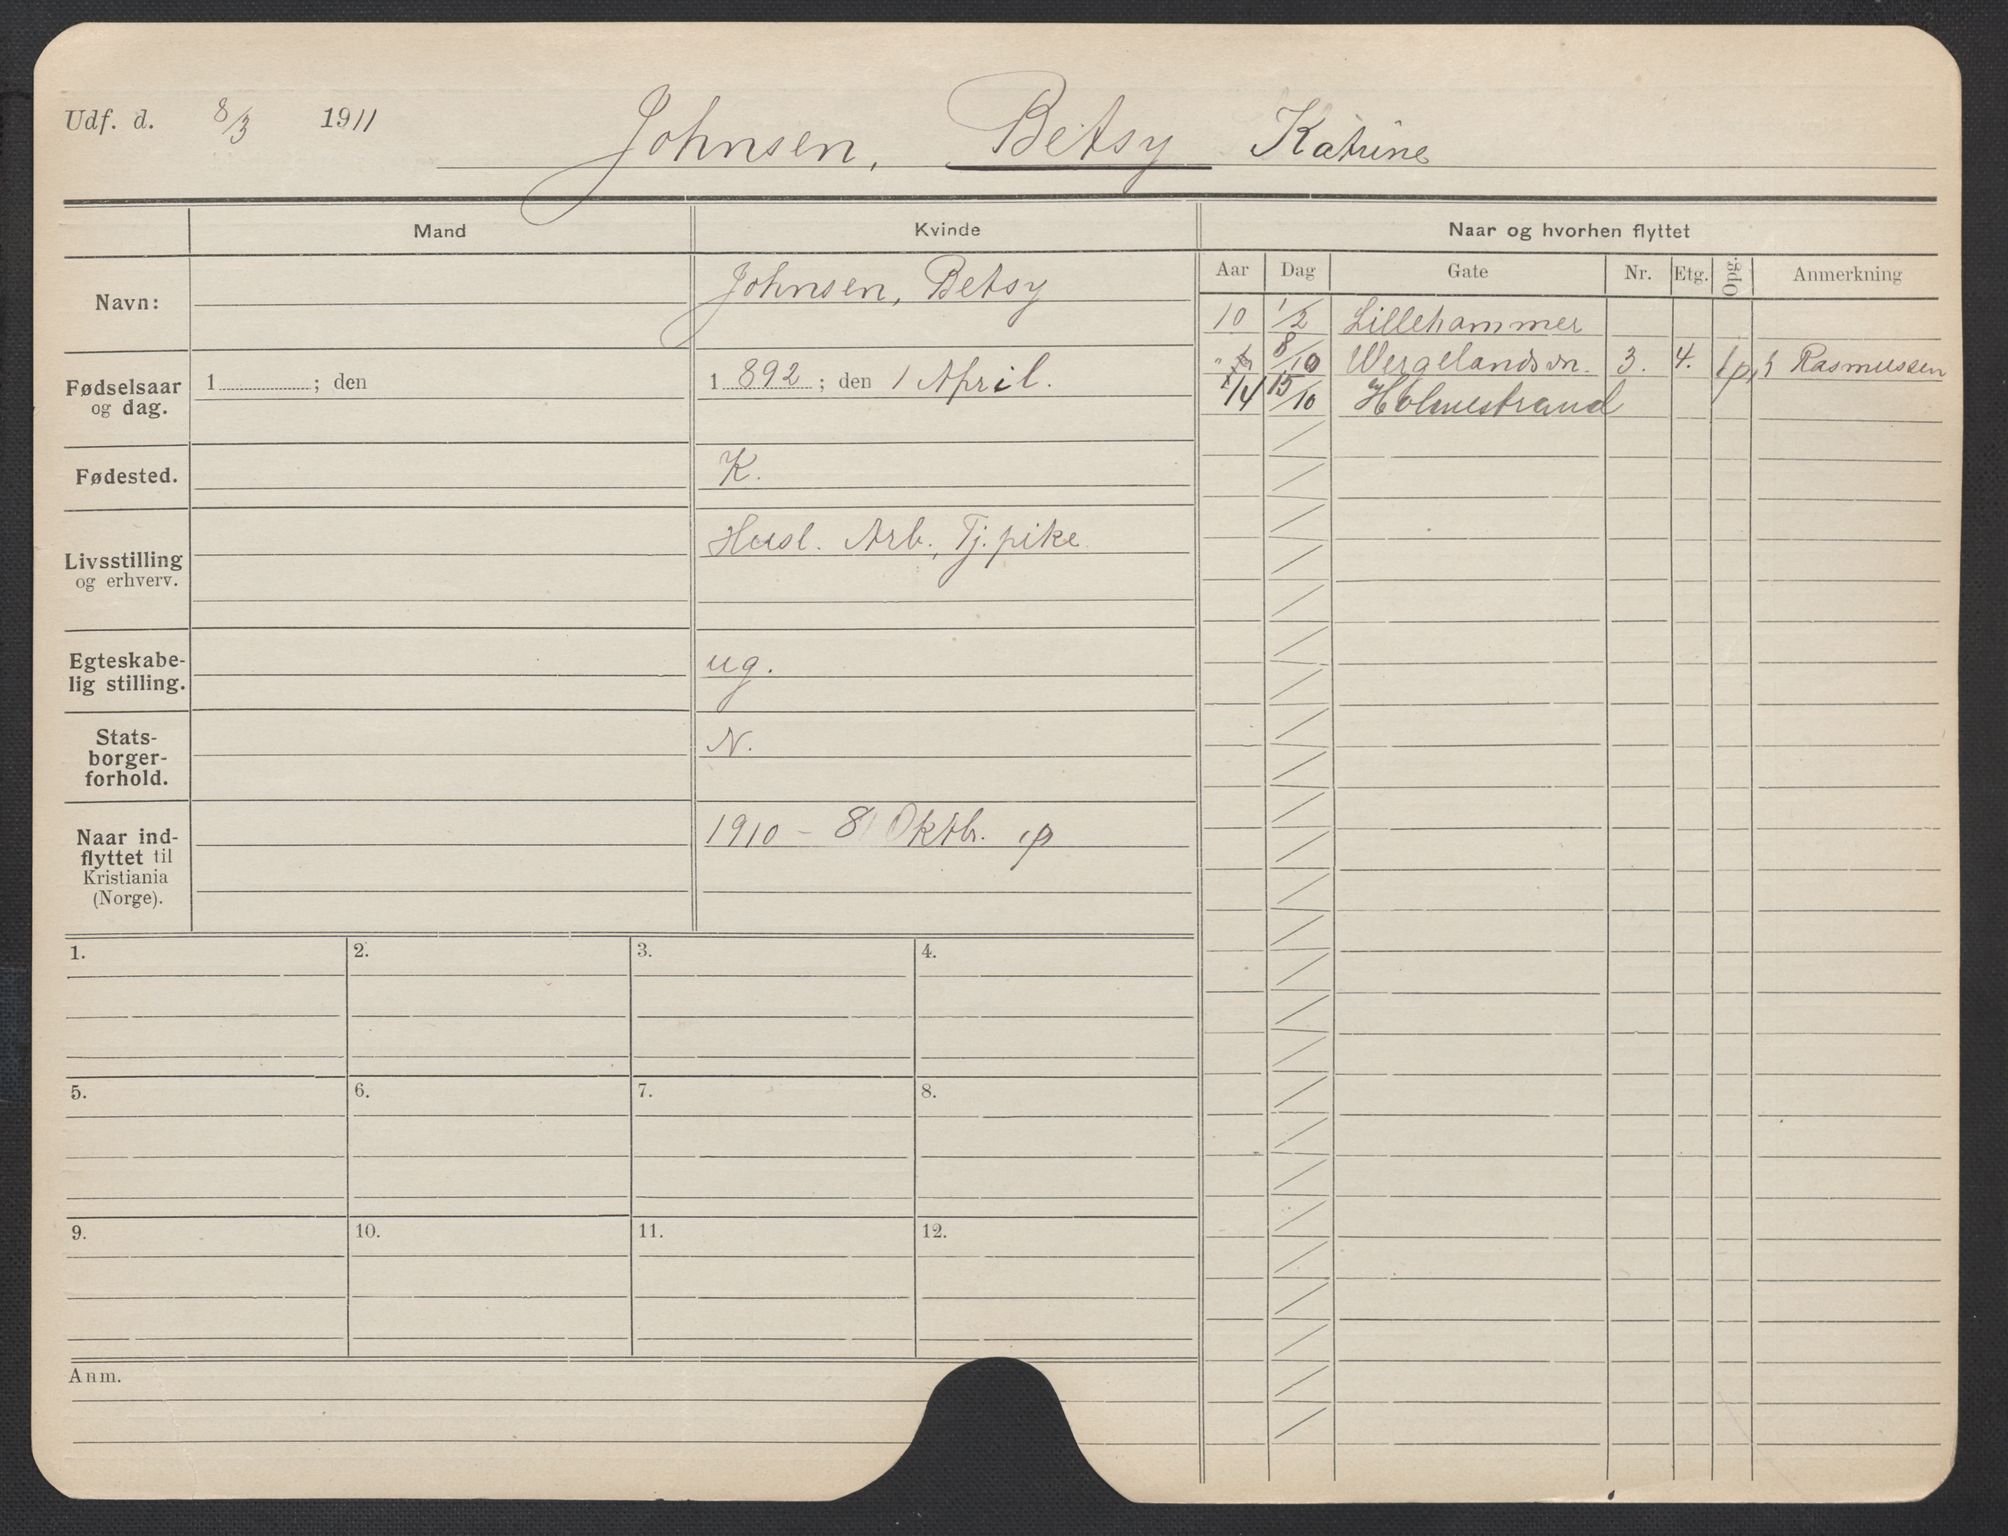 Udf. d. 8/3 1911
Johnsen, Betsy Katrine
Mand
Kvinde
Naar og hvorhen flyttet
Aar Dag Gate Nr. Etg. Opg. Anmerkning
Navn:
Johnsen, Betsy
10 1/2 Lillehammer
" 8/10 Wergelandsvn. 3. 4. Rasmussen
14 15/10 Holmestrand
Fødselsaar
og dag.
1 ; den
1 892 ; den 1 April.
Fødested.
K.
Livsstilling
og erhverv.
Husl. Arb., Tj.pike
Egteskabe-
lig stilling.
ug.
Stats-
borger-
forhold.
N.
Naar ind-
flyttet til
Kristiania
(Norge).
1910 - 8 Oktbr.
1. 2. 3. 4.
5. 6. 7. 8.
9. 10. 11. 12.
Anm.